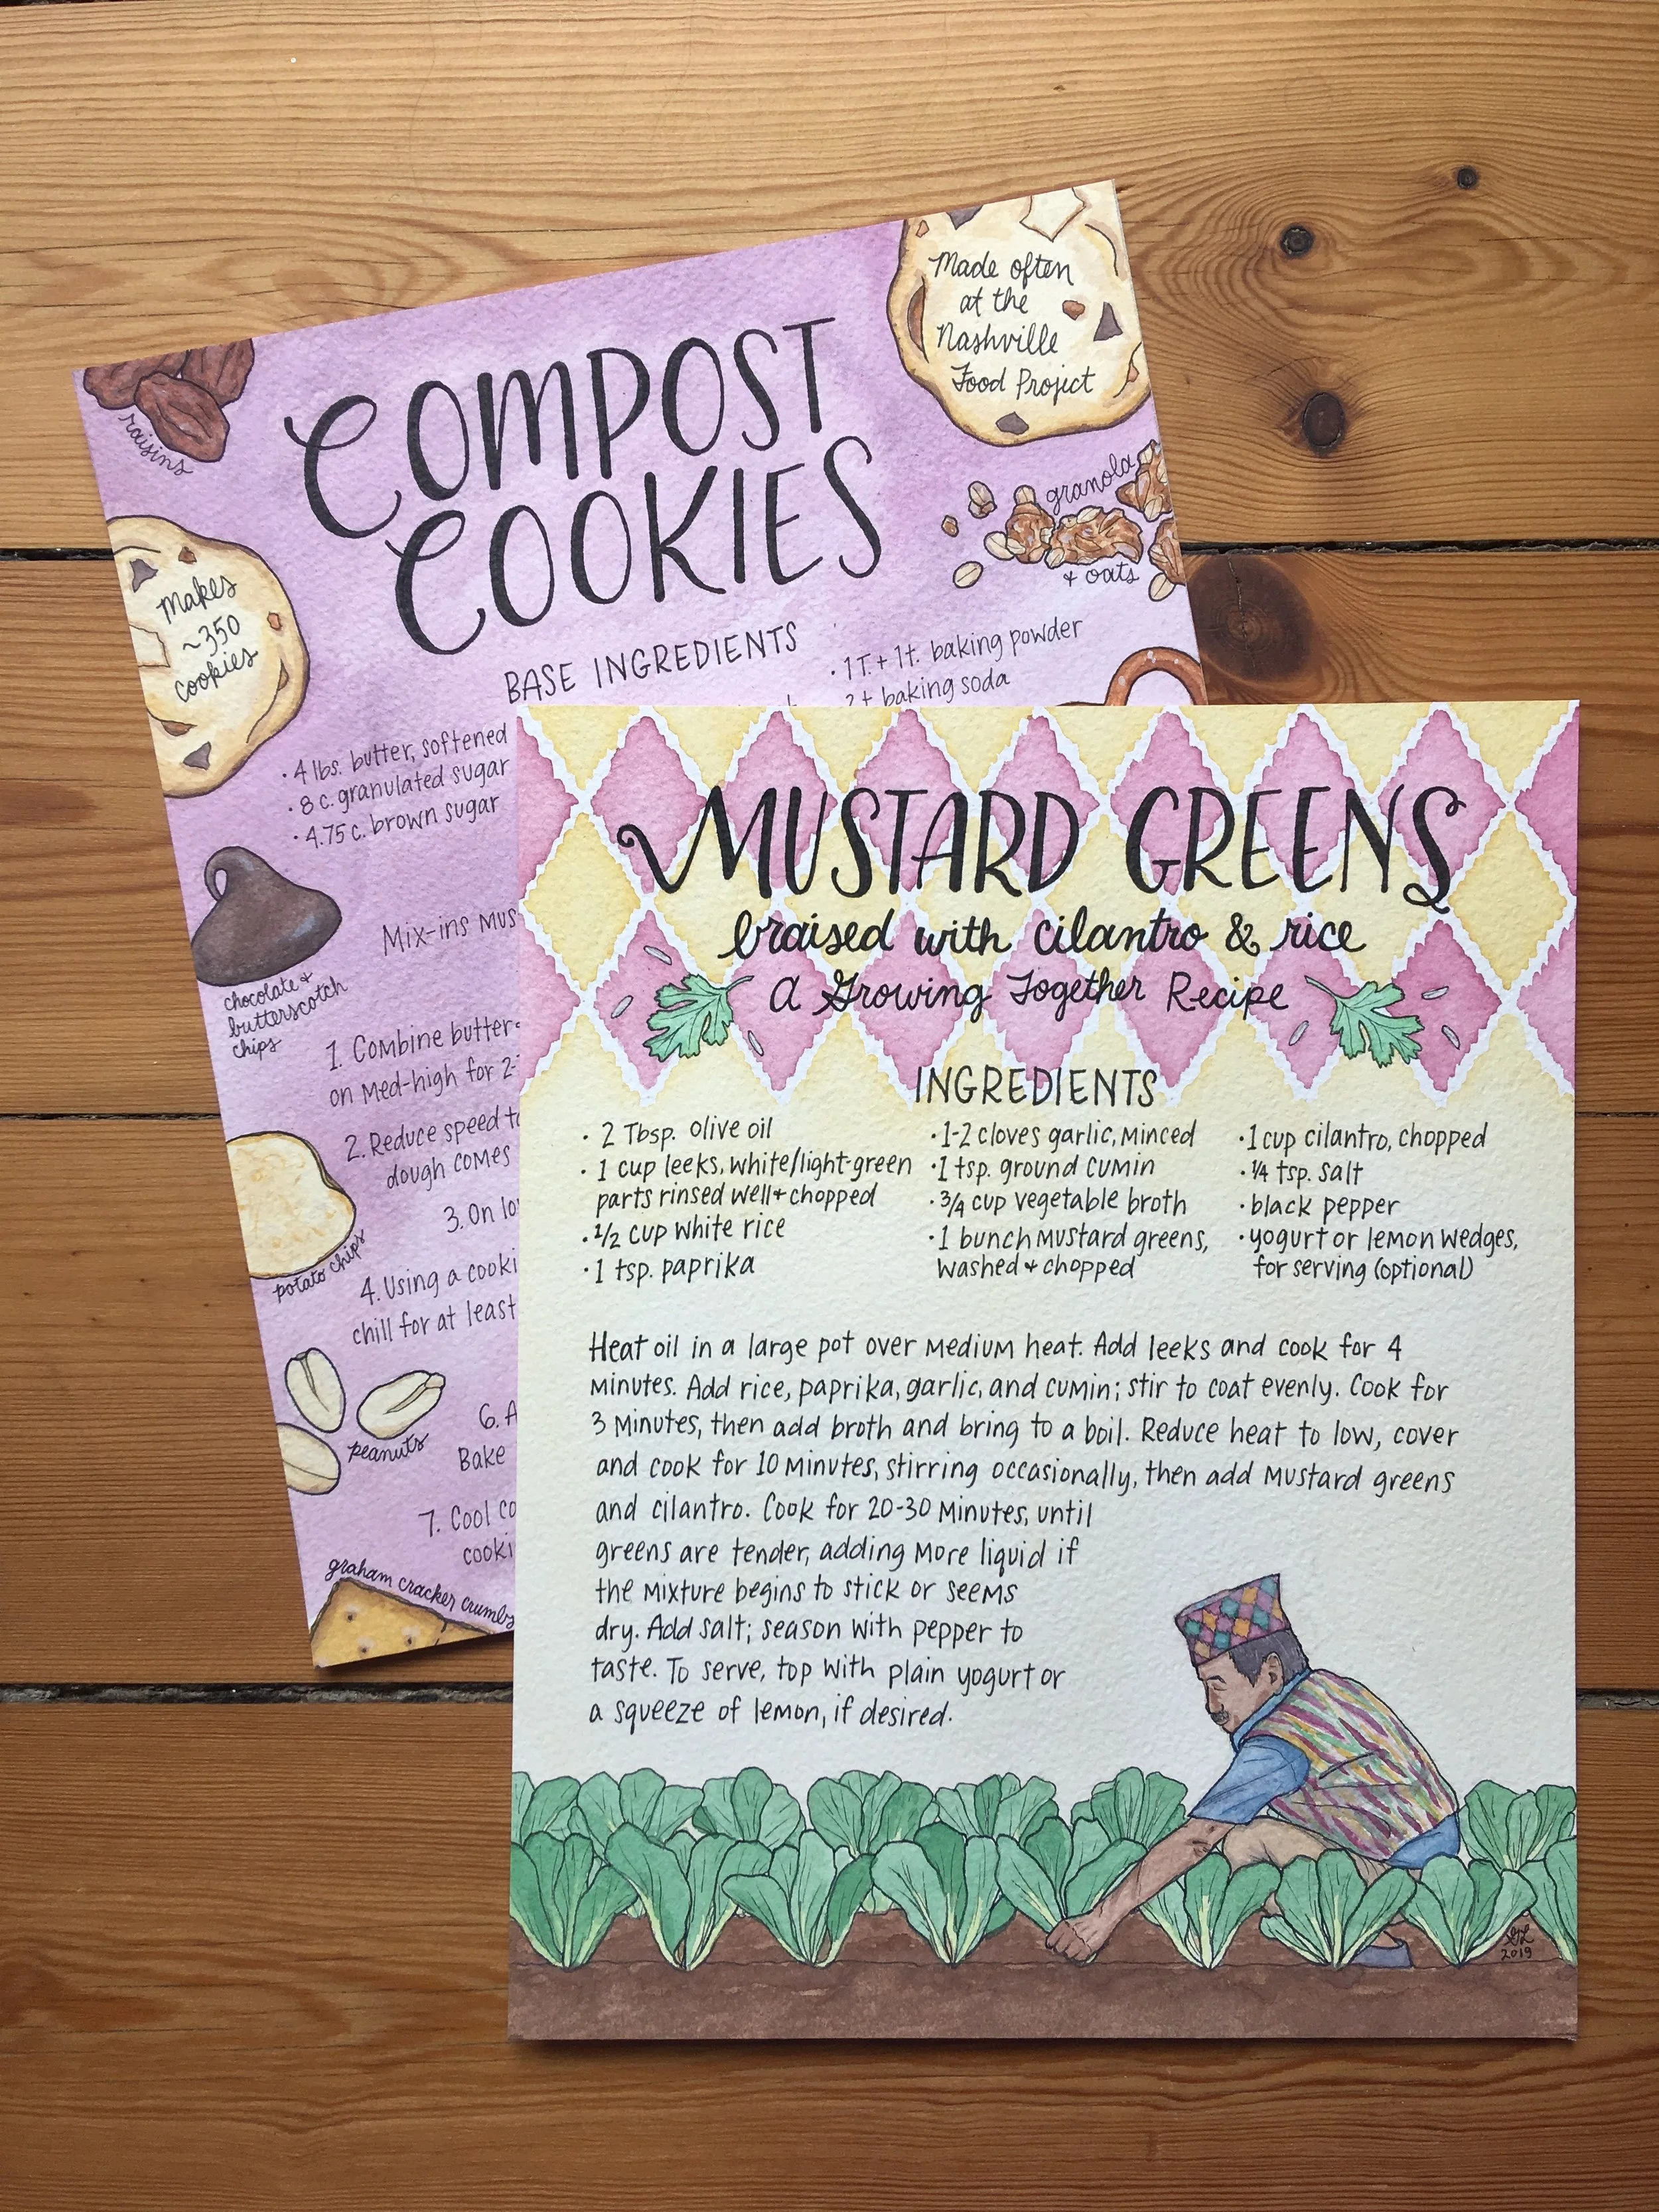 COMPOST
COOKIES
Made often
at the
Nashville
Food Project
raisins
granola
& oats
Makes
~350
cookies
BASE INGREDIENTS
• 4 lbs. butter, softened
• 8 c. granulated sugar
• 4.75 c. brown sugar
• 1 T. + 1 t. baking powder
2 t baking soda
Mix-ins
chocolate +
butterscotch
chips
1. Combine butter
on med-high for 2-
2. Reduce speed
dough comes
3. On
4. Using a
chill for at least
potato chips
peanuts
6.
Bake
7. Cool
graham cracker crumbs
MUSTARD GREENS
braised with cilantro & rice
A Growing Together Recipe
INGREDIENTS
• 2 Tbsp. olive oil
• 1 cup leeks, white/light-green
parts rinsed well + chopped
• 1/2 cup white rice
• 1 tsp. paprika
• 1-2 cloves garlic, minced
• 1 tsp. ground cumin
• 3/4 cup vegetable broth
• 1 bunch mustard greens,
washed + chopped
• 1 cup cilantro, chopped
• 1/4 tsp. salt
• black pepper
• yogurt or lemon wedges,
for serving (optional)
Heat oil in a large pot over medium heat. Add leeks and cook for 4
minutes. Add rice, paprika, garlic, and cumin; stir to coat evenly. Cook for
3 minutes, then add broth and bring to a boil. Reduce heat to low, cover
and cook for 10 minutes, stirring occasionally, then add mustard greens
and cilantro. Cook for 20-30 minutes, until
greens are tender, adding more liquid if
the mixture begins to stick or seems
dry. Add salt; season with pepper to
taste. To serve, top with plain yogurt or
a squeeze of lemon, if desired.
2019